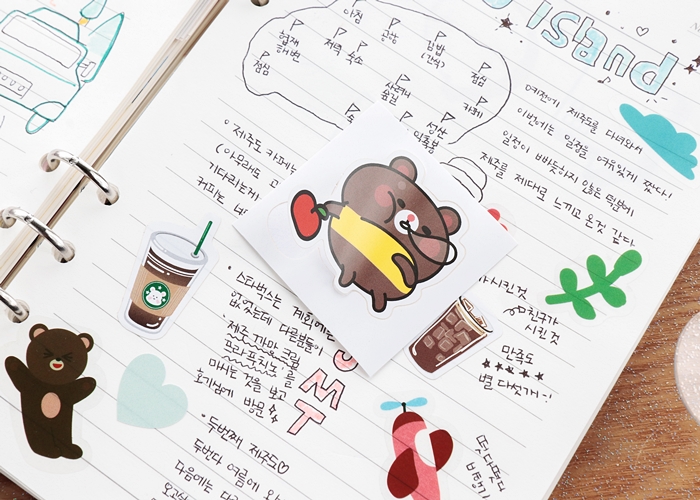 아침
공항
김밥
(간식)
점심
협재
해변
점심
저녁 숙소
사려니
숲길
카페
숙
성산
일출봉
Island
예전에 제주도를 다녀와서
이번에는 일정을 여유있게 짰다!
일정이 바쁘듯하지 않은 덕분에
제주를 제대로 느끼고 온것 같다
• 제주도 카페
(아무래도
기다리는게
커피는
• 스타벅스는 계획에는
없었는데 다른분들이
'제주 까망 크림
프라푸치노'를
마시는 것을 보고
호기심에 방문
SMT
가 시킨것
친구가
시킨 것
만족도
★★★★★
별 다섯개~!
• 두번째 제주도♡
두번다 여름에
다음에는